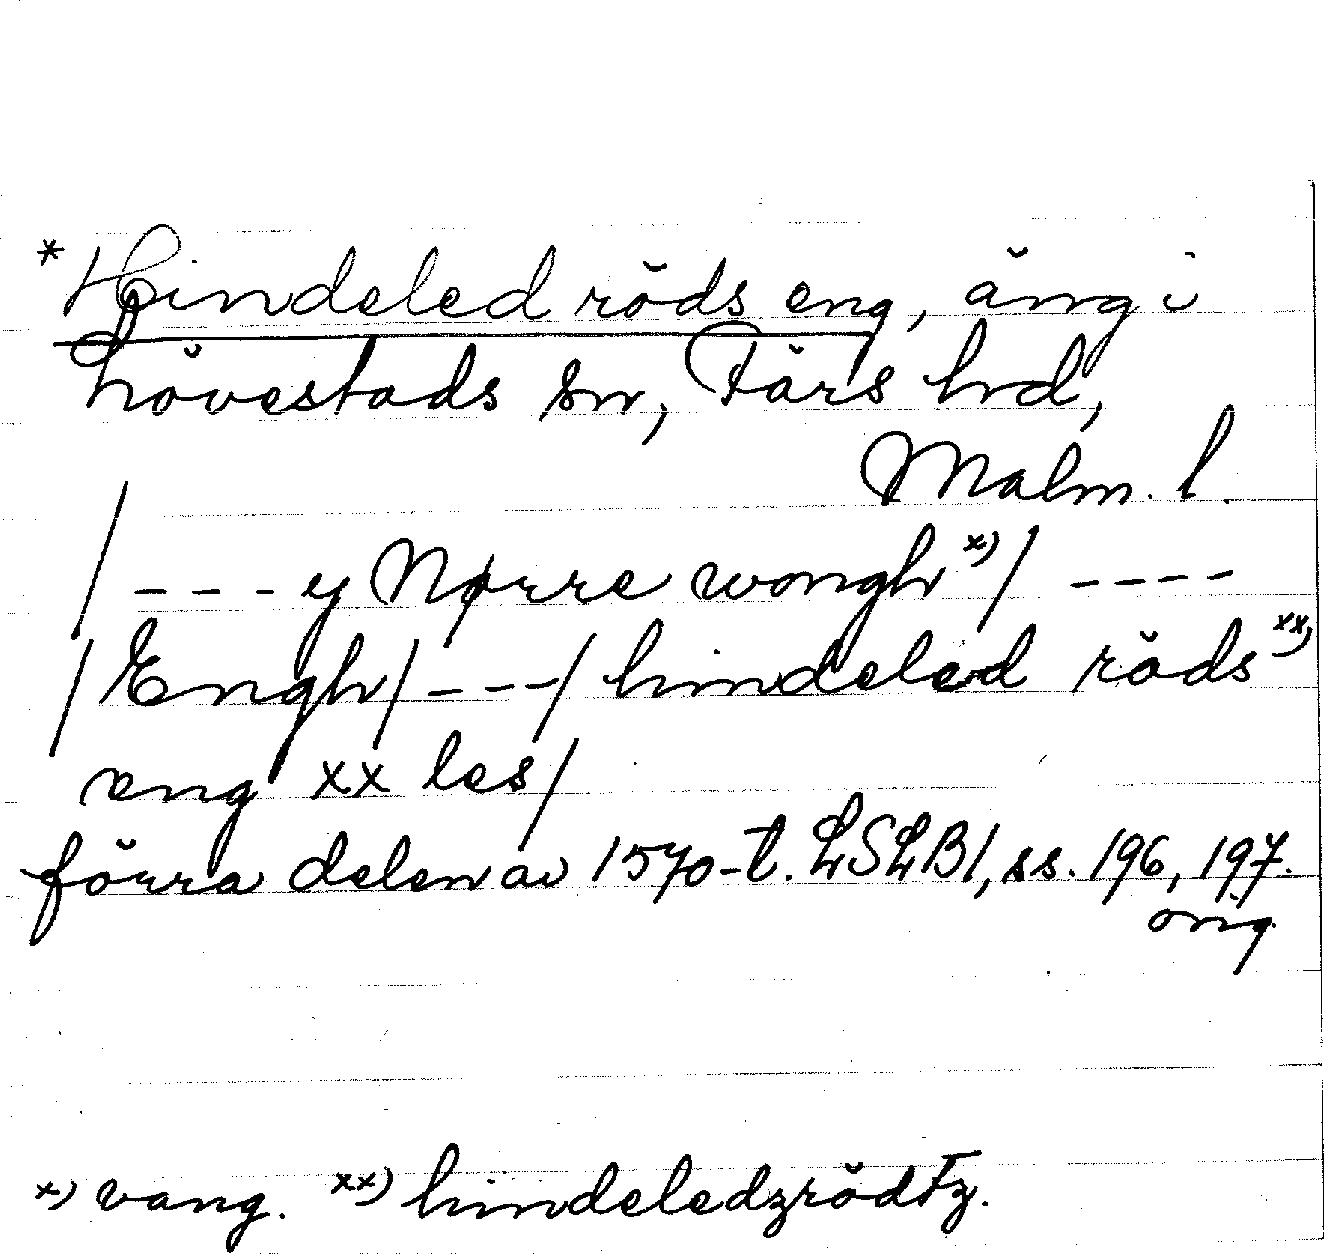 *Hindeled röds eng, äng i
Lövestads sn, Färs hrd,
Malm. l.
/ - - - y Nørre wongh x) / - - - -
/ Engh / - - - / hindeled röds xx)
eng xx les /
förra delen av 1570-t. LSLB1, ss. 196, 197.
orig.
x) vang. xx) hindeledzrödtz.